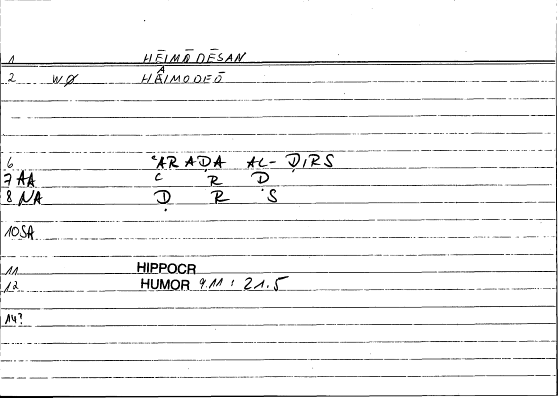 1 HĒIMĀDĒSAN
2 WØ HĀIMODEŌ
6 ʿARAḌA AL-ḌIRS
7 AA ʿ R Ḍ
8 NA Ḍ R S
10 SA
11 HIPPOCR
12 HUMOR 9.11 : 21.5
14?